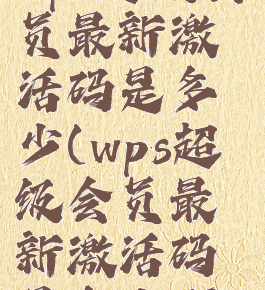 员最新激
活码是多
少(wps超
级会员最
新激活码